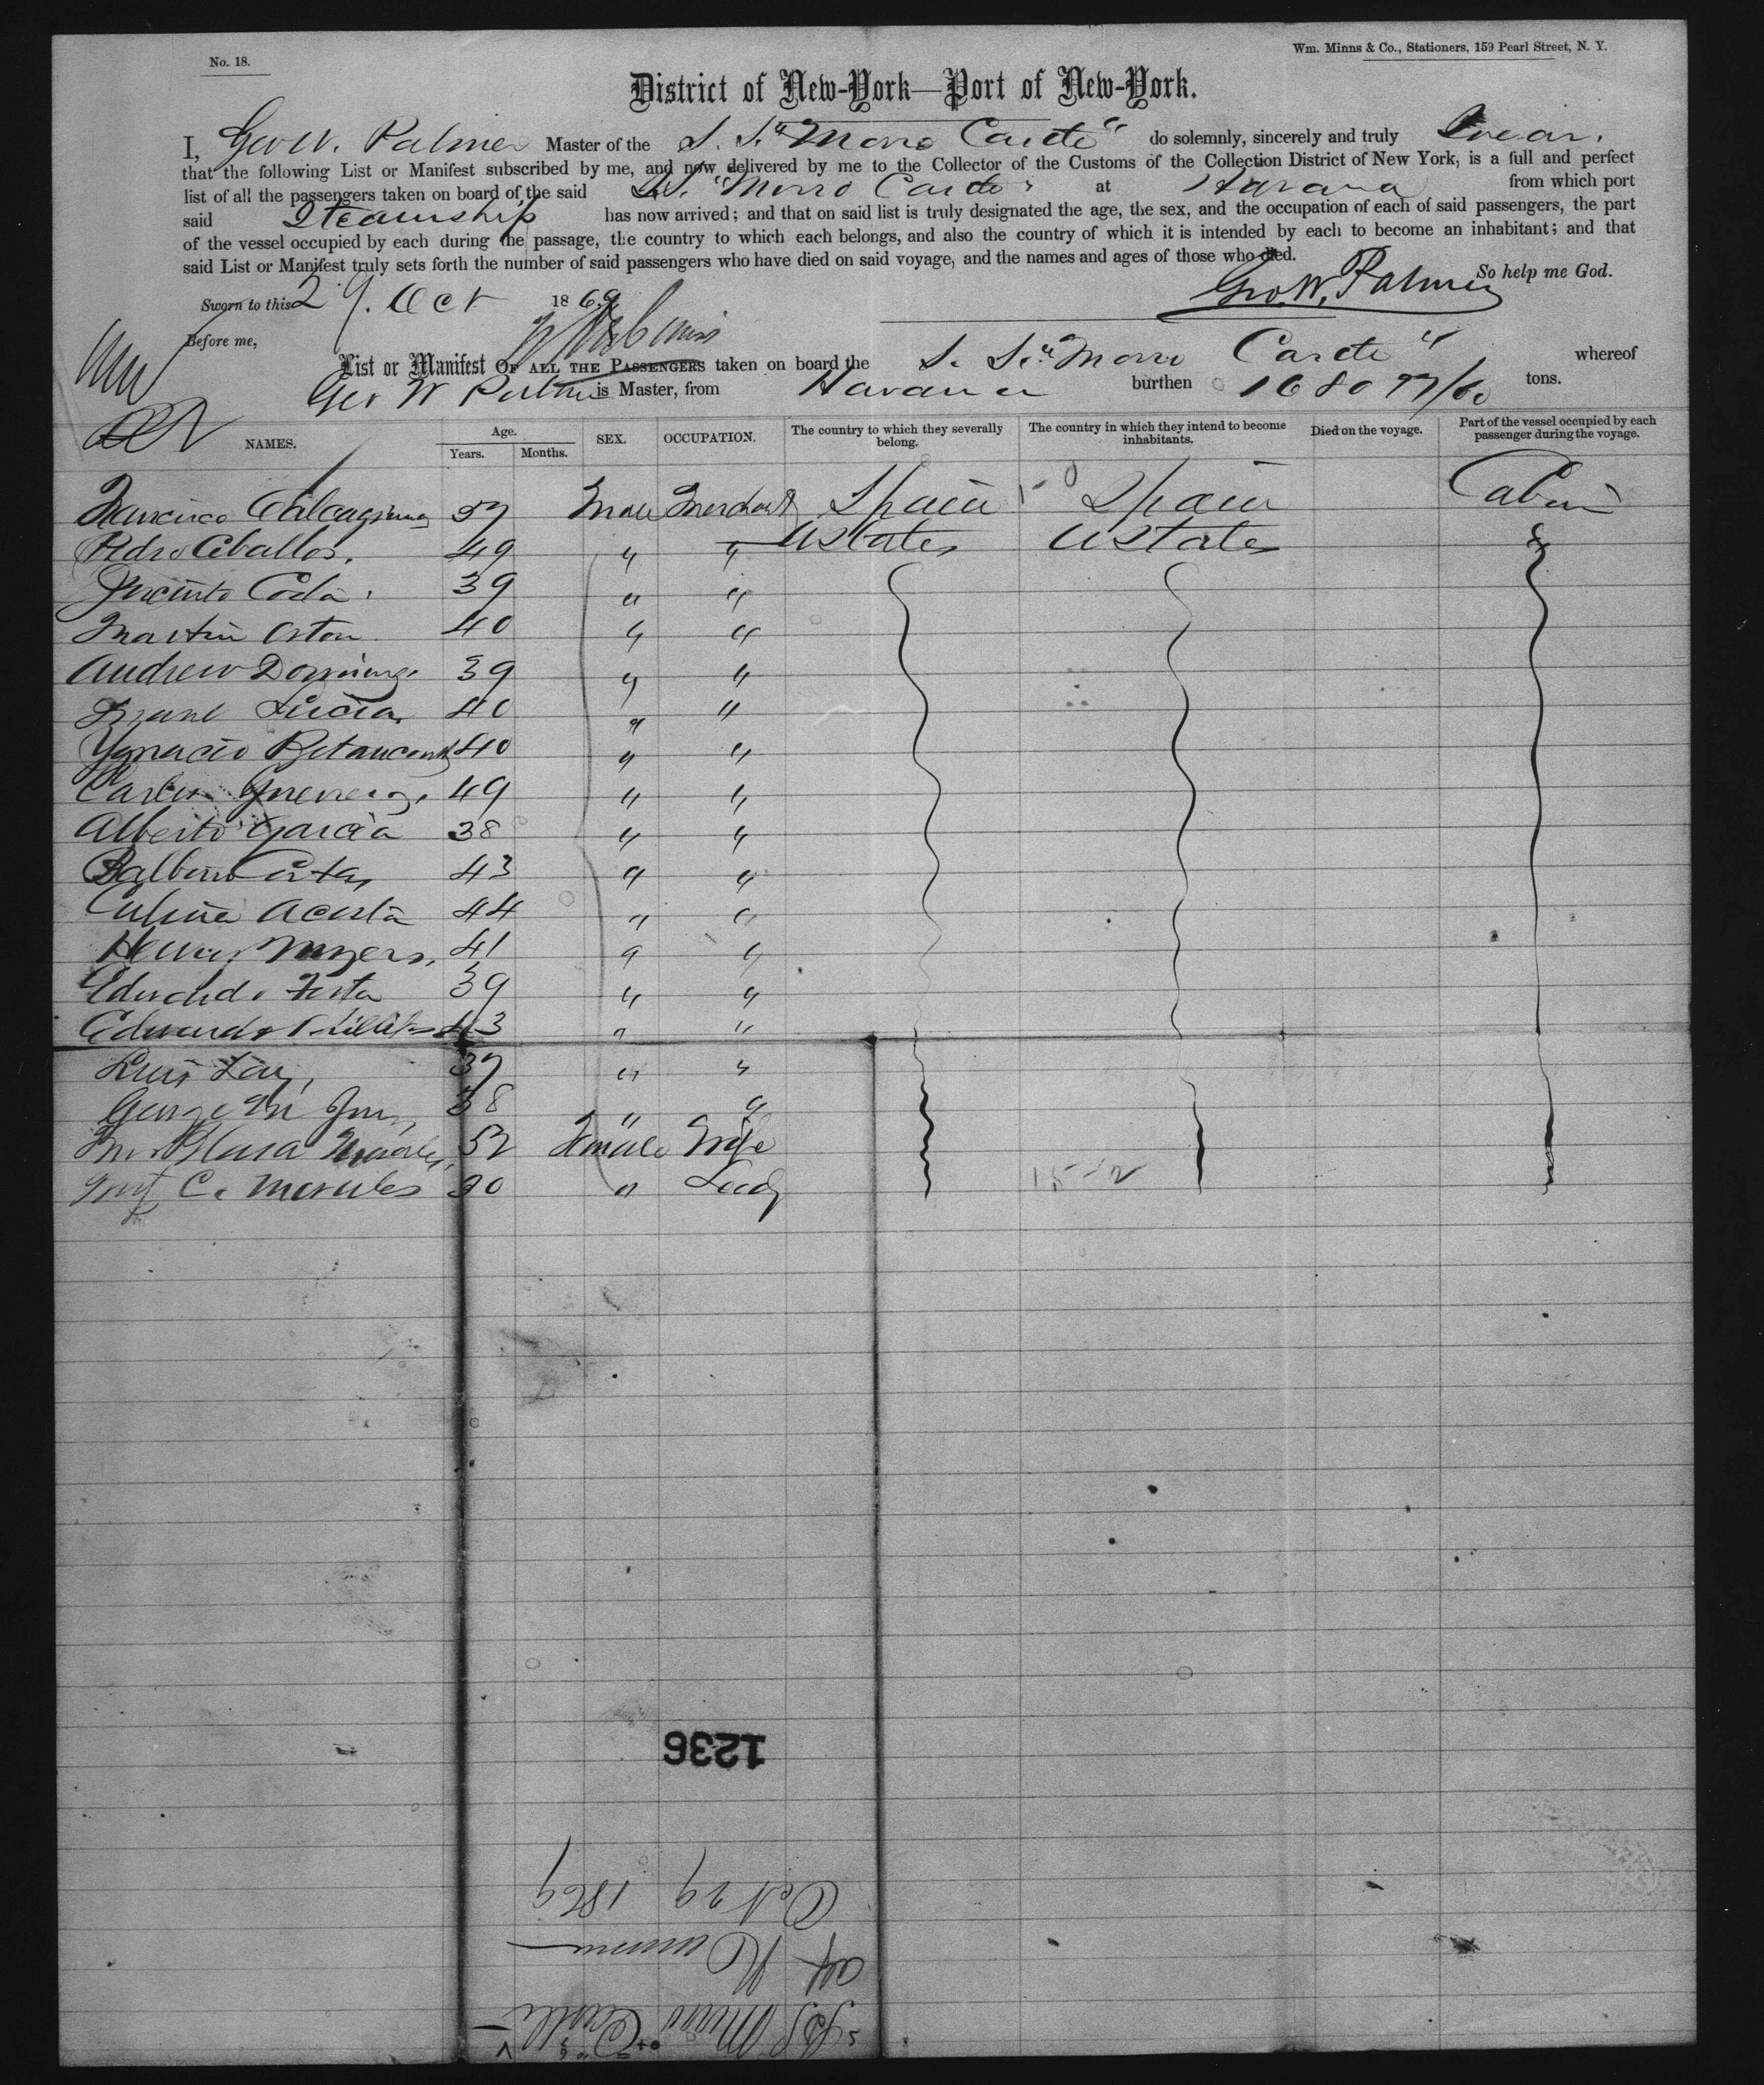 No. 18.
Wm. Minns & Co., Stationers, 159 Pearl Street, N. Y.
District of New-York—Port of New-York.
I, Geo W. Palmer Master of the S. S. "Morro Castle" do solemnly, sincerely and truly Swear,
that the following List or Manifest subscribed by me, and now delivered by me to the Collector of the Customs of the Collection District of New York, is a full and perfect
list of all the passengers taken on board of the said S.S. "Morro Castle" at Havana from which port
said Steamship has now arrived; and that on said list is truly designated the age, the sex, and the occupation of each of said passengers, the part
of the vessel occupied by each during the passage, the country to which each belongs, and also the country of which it is intended by each to become an inhabitant; and that
said List or Manifest truly sets forth the number of said passengers who have died on said voyage, and the names and ages of those who died.
So help me God.
Geo. W. Palmer
Sworn to this 29. Oct 1869
Before me,
List or Manifest OF ALL THE PASSENGERS taken on board the S. S. "Morro Castle" whereof
Geo W Palmer is Master, from Havana burthen 1680 tons.
NAMES. Age. Years. Months. SEX. OCCUPATION. The country to which they severally belong. The country in which they intend to become inhabitants. Died on the voyage. Part of the vessel occupied by each passenger during the voyage.
Francisco 57 Male Merchant Spain Spain Cabin
Pedro Ceballos. 49 " " U States U States
Jacinto 39 " "
Martin 40 " "
Andrew 39 " "
40 " "
Ygnacio Betancourt 40 " "
Carlos 49 " "
Alberto Garcia 38 " "
Balbino 43 " "
Acosta 44 " "
Henry Myers, 41 " "
Eduardo 39 " "
Edwards 43 " "
Luis 37 " "
George 38 " "
52 Female Wife
C. Morales 30 " Lady
15-2
1236
SS Morro Castle
Oct 29 1869